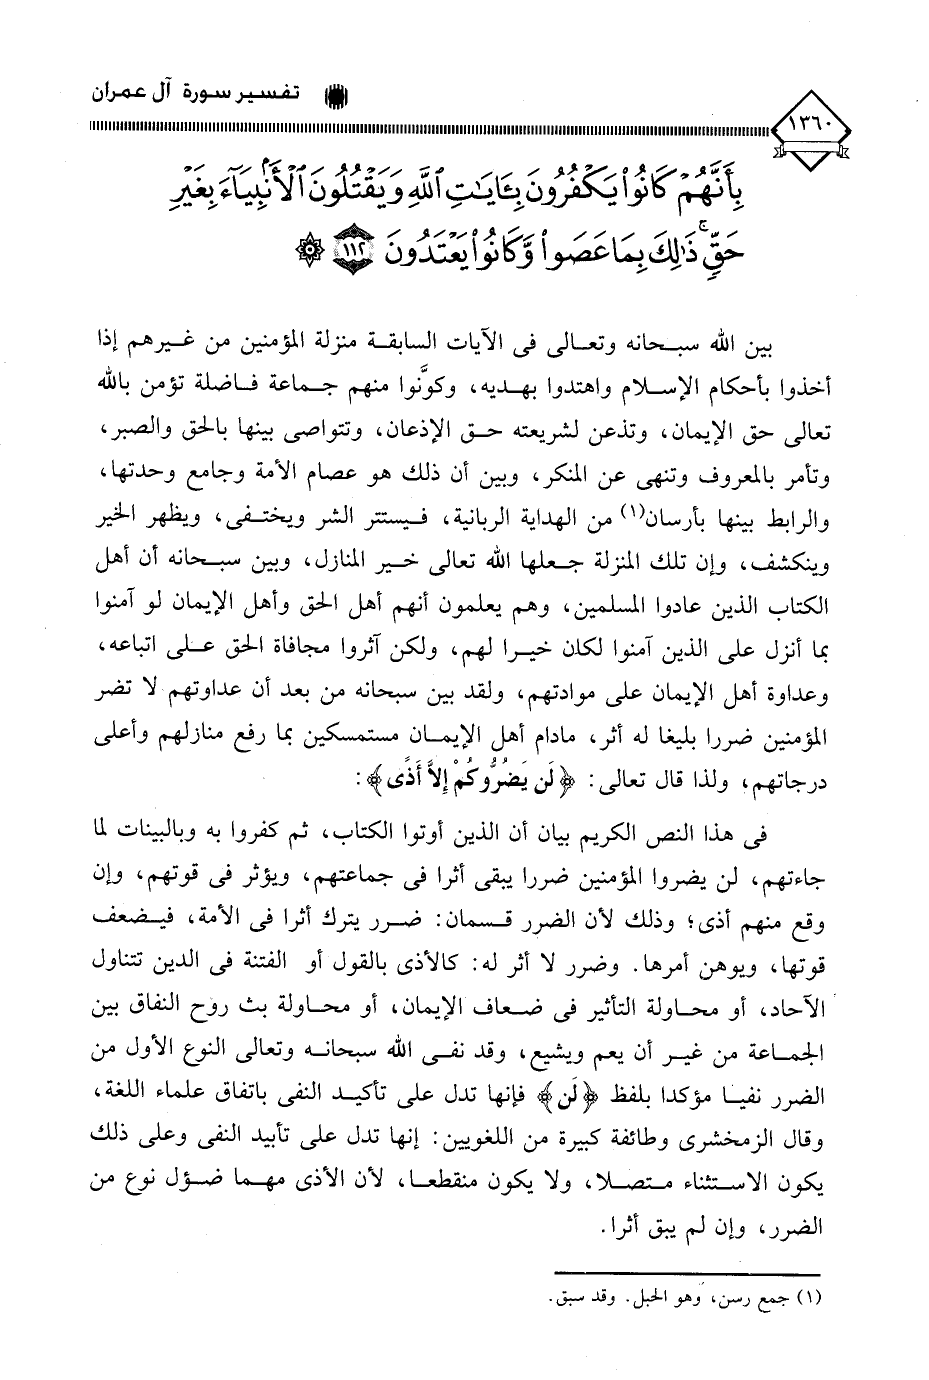 تفسير سورة آل عمران
١٣٦٠
بِأَنَّهُمْ كَانُوا۟ يَكْفُرُونَ بِـَٔايَـٰتِ ٱللَّهِ وَيَقْتُلُونَ ٱلْأَنۢبِيَآءَ بِغَيْرِ
حَقٍّ ۚ ذَٰلِكَ بِمَا عَصَوا۟ وَّكَانُوا۟ يَعْتَدُونَ ١١٢
بين الله سبحانه وتعالى فى الآيات السابقة منزلة المؤمنين من غيرهم إذا
أخذوا بأحكام الإسلام واهتدوا بهديه، وكوَّنوا منهم جماعة فاضلة تؤمن بالله
تعالى حق الإيمان، وتذعن لشريعته حق الإذعان، وتتواصى بينها بالحق والصبر،
وتأمر بالمعروف وتنهى عن المنكر، وبين أن ذلك هو عصام الأمة وجامع وحدتها،
والرابط بينها بأرسان(١) من الهداية الربانية، فيستتر الشر ويختفى، ويظهر الخير
وينكشف، وإن تلك المنزلة جعلها الله تعالى خير المنازل، وبين سبحانه أن أهل
الكتاب الذين عادوا المسلمين، وهم يعلمون أنهم أهل الحق وأهل الإيمان لو آمنوا
بما أنزل على الذين آمنوا لكان خيرا لهم، ولكن آثروا مجافاة الحق على اتباعه،
وعداوة أهل الإيمان على موادتهم، ولقد بين سبحانه من بعد أن عداوتهم لا تضر
المؤمنين ضررا بليغا له أثر، مادام أهل الإيمان مستمسكين بما رفع منازلهم وأعلى
درجاتهم، ولذا قال تعالى: ﴿لَن يَضُرُّوكُمْ إِلاَّ أَذًى﴾:
فى هذا النص الكريم بيان أن الذين أوتوا الكتاب، ثم كفروا به وبالبينات لما
جاءتهم، لن يضروا المؤمنين ضررا يبقى أثرا فى جماعتهم، ويؤثر فى قوتهم، وإن
وقع منهم أذى؛ وذلك لأن الضرر قسمان: ضرر يترك أثرا فى الأمة، فيضعف
قوتها، ويوهن أمرها. وضرر لا أثر له: كالأذى بالقول أو الفتنة فى الدين تتناول
الآحاد، أو محاولة التأثير فى ضعاف الإيمان، أو محاولة بث روح النفاق بين
الجماعة من غير أن يعم ويشيع، وقد نفى الله سبحانه وتعالى النوع الأول من
الضرر نفيا مؤكدا بلفظ ﴿لَن﴾ فإنها تدل على تأكيد النفى باتفاق علماء اللغة،
وقال الزمخشرى وطائفة كبيرة من اللغويين: إنها تدل على تأبيد النفى وعلى ذلك
يكون الاستثناء متصلا، ولا يكون منقطعا، لأن الأذى مهما ضؤل نوع من
الضرر، وإن لم يبق أثرا.
(١) جمع رسن، وهو الحبل. وقد سبق.